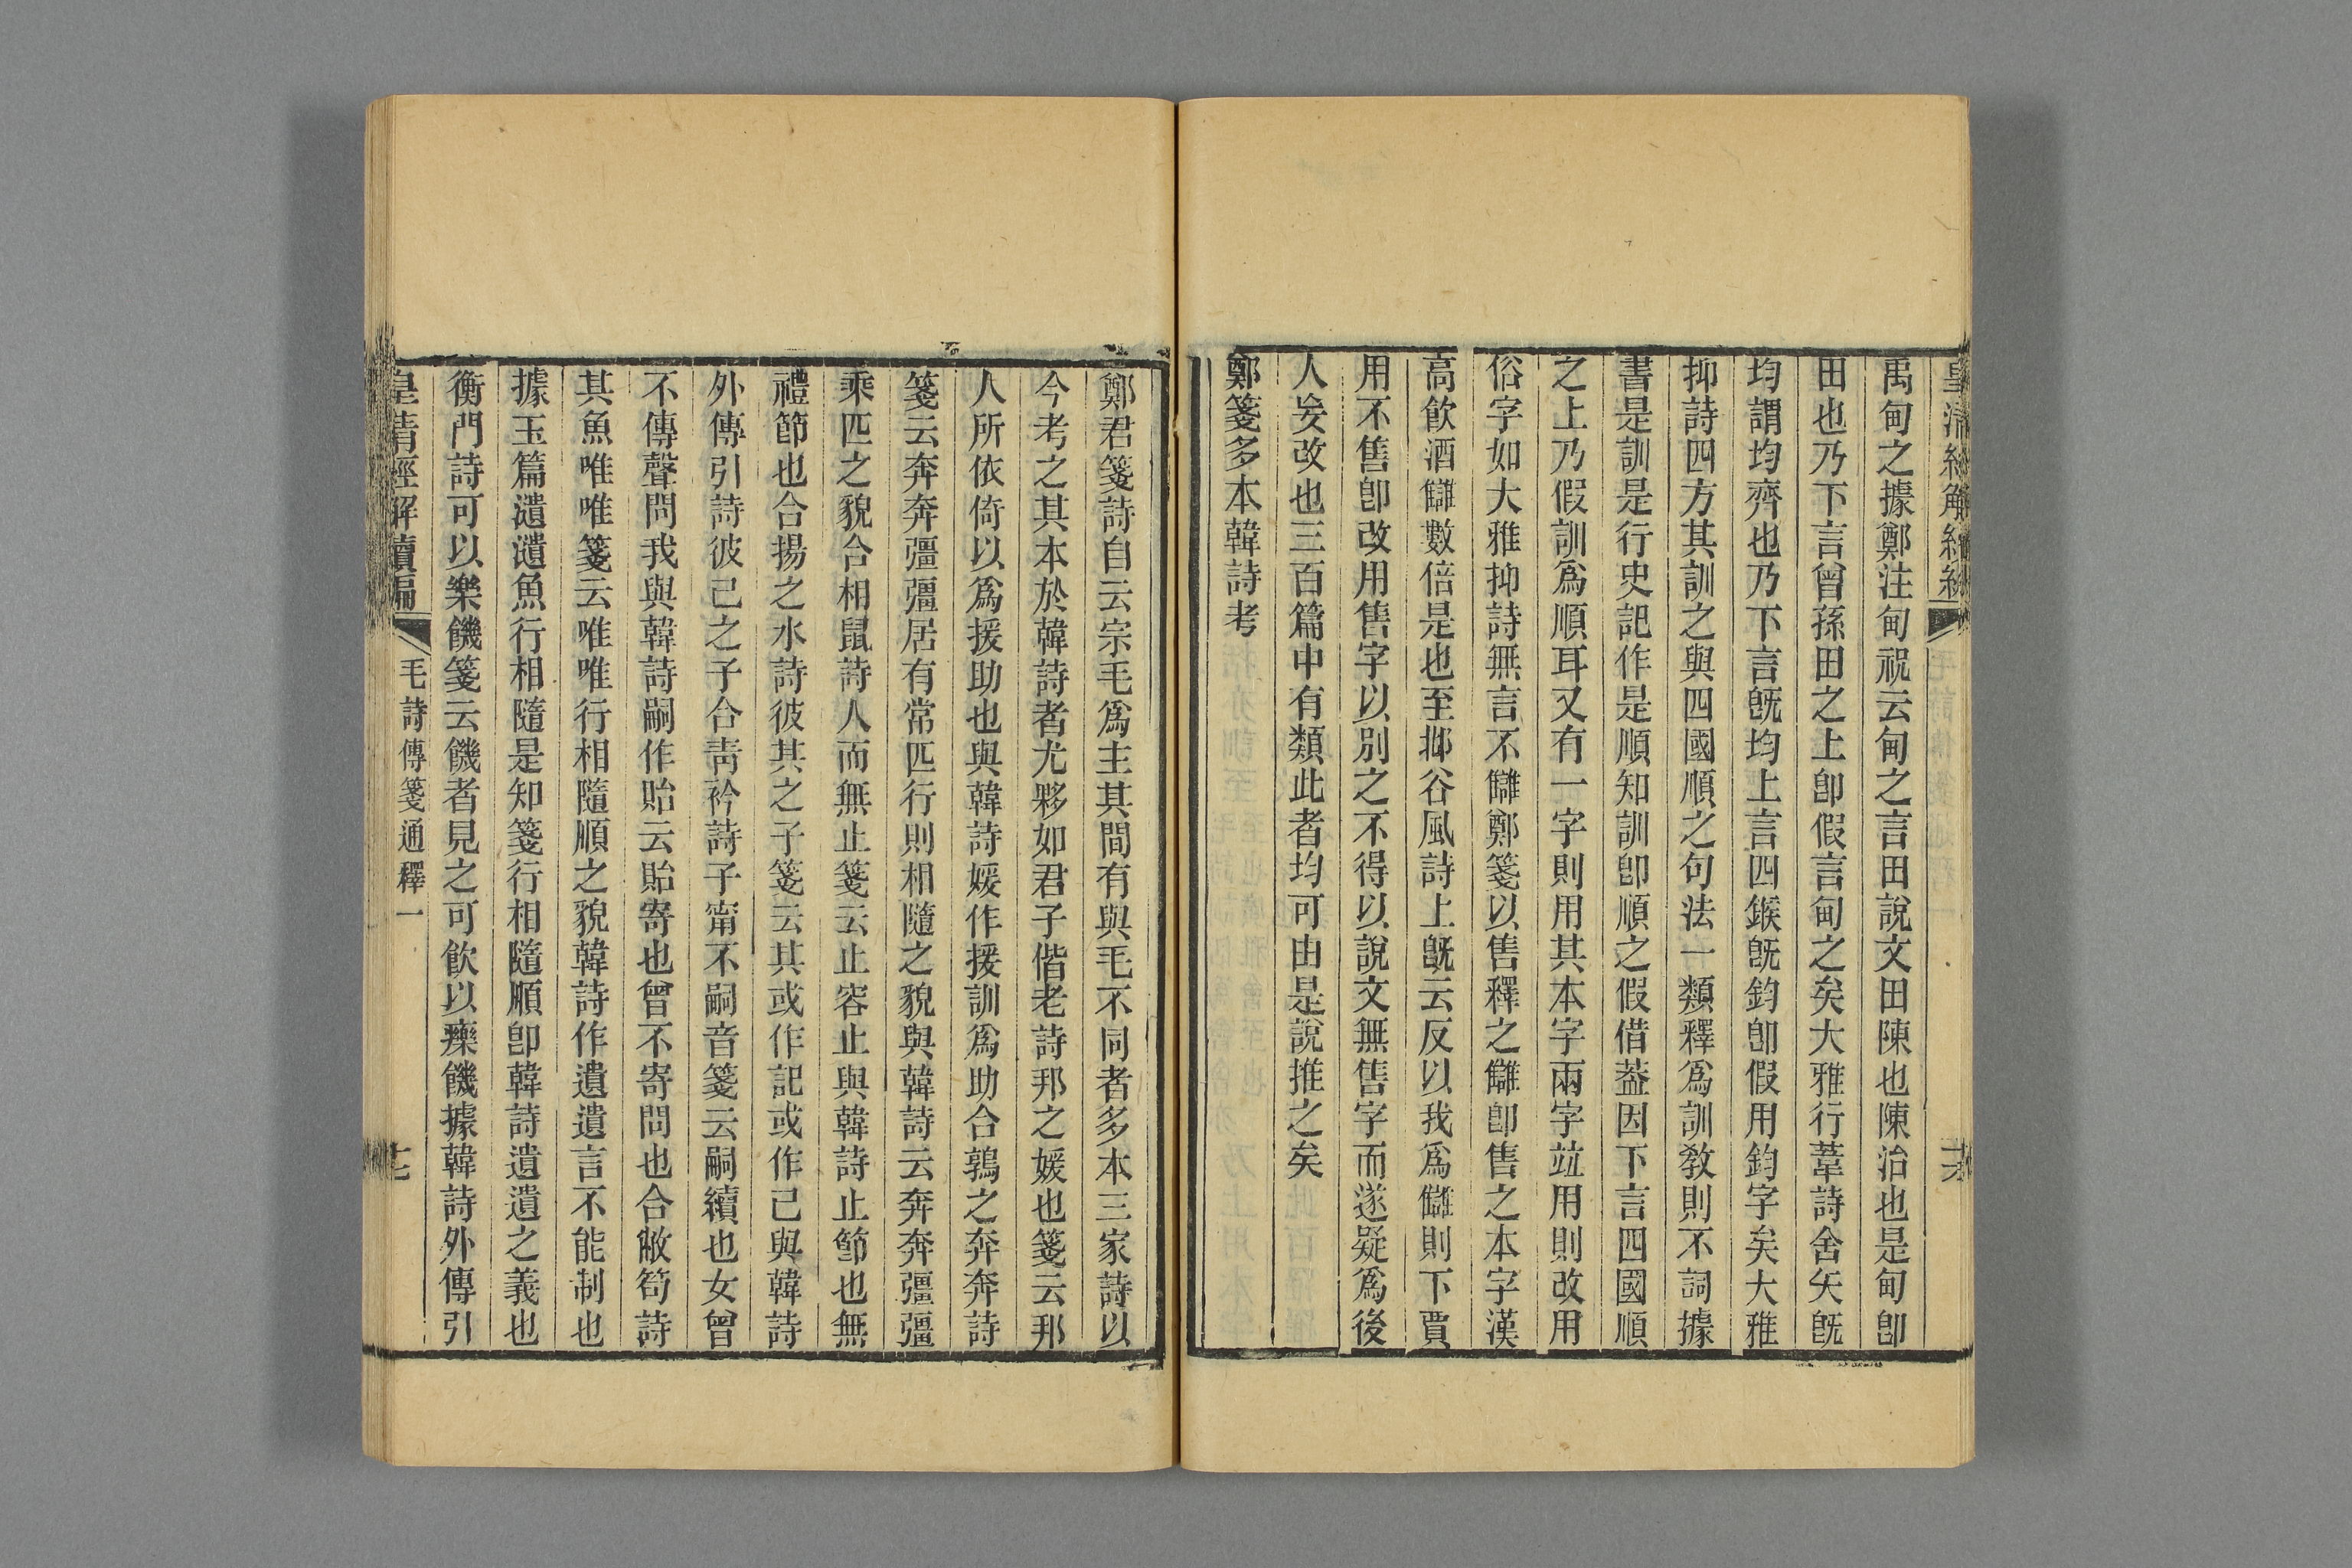 禹甸之據鄭注甸祝云甸之言田說文田陳也陳治也是甸卽
田也乃下言曾孫田之上卽假言甸之矣大雅行葦詩舍矢旣
均謂均齊也乃下言旣均上言四鍭旣鈞卽假用鈞字矣大雅
抑詩四方其訓之與四國順之句法一類釋爲訓敎則不詞據
書是訓是行史記作是順知訓卽順之假借葢因下言四國順
之上乃假訓爲順耳又有一字則用其本字兩字竝用則改用
俗字如大雅抑詩無言不讎鄭箋以售釋之讎卽售之本字漢
高飮酒讎數倍是也至邶谷風詩上旣云反以我爲讎則下賈
用不售卽改用售字以別之不得以說文無售字而遂疑爲後
人妄改也三百篇中有類此者均可由是說推之矣
鄭箋多本韓詩考
鄭君箋詩自云宗毛爲主其間有與毛不同者多本三家詩以
今考之其本於韓詩者尤夥如君子偕老詩邦之媛也箋云邦
人所依倚以爲援助也與韓詩媛作援訓爲助合鶉之奔奔詩
箋云奔奔彊彊居有常匹行則相隨之貌與韓詩云奔奔彊彊
乘匹之貌合相鼠詩人而無止箋云止容止與韓詩止節也無
禮節也合揚之水詩彼其之子箋云其或作記或作己與韓詩
外傳引詩彼己之子合靑衿詩子甯不嗣音箋云嗣續也女曾
不傳聲問我與韓詩嗣作貽云貽寄也曾不寄問也合敝笱詩
其魚唯唯箋云唯唯行相隨順之貌韓詩作遺遺言不能制也
據玉篇瀢瀢魚行相隨是知箋行相隨順卽韓詩遺遺之義也
衡門詩可以樂饑箋云饑者見之可飮以𤻲饑據韓詩外傳引
皇淸經解續編
毛詩傳箋通釋一